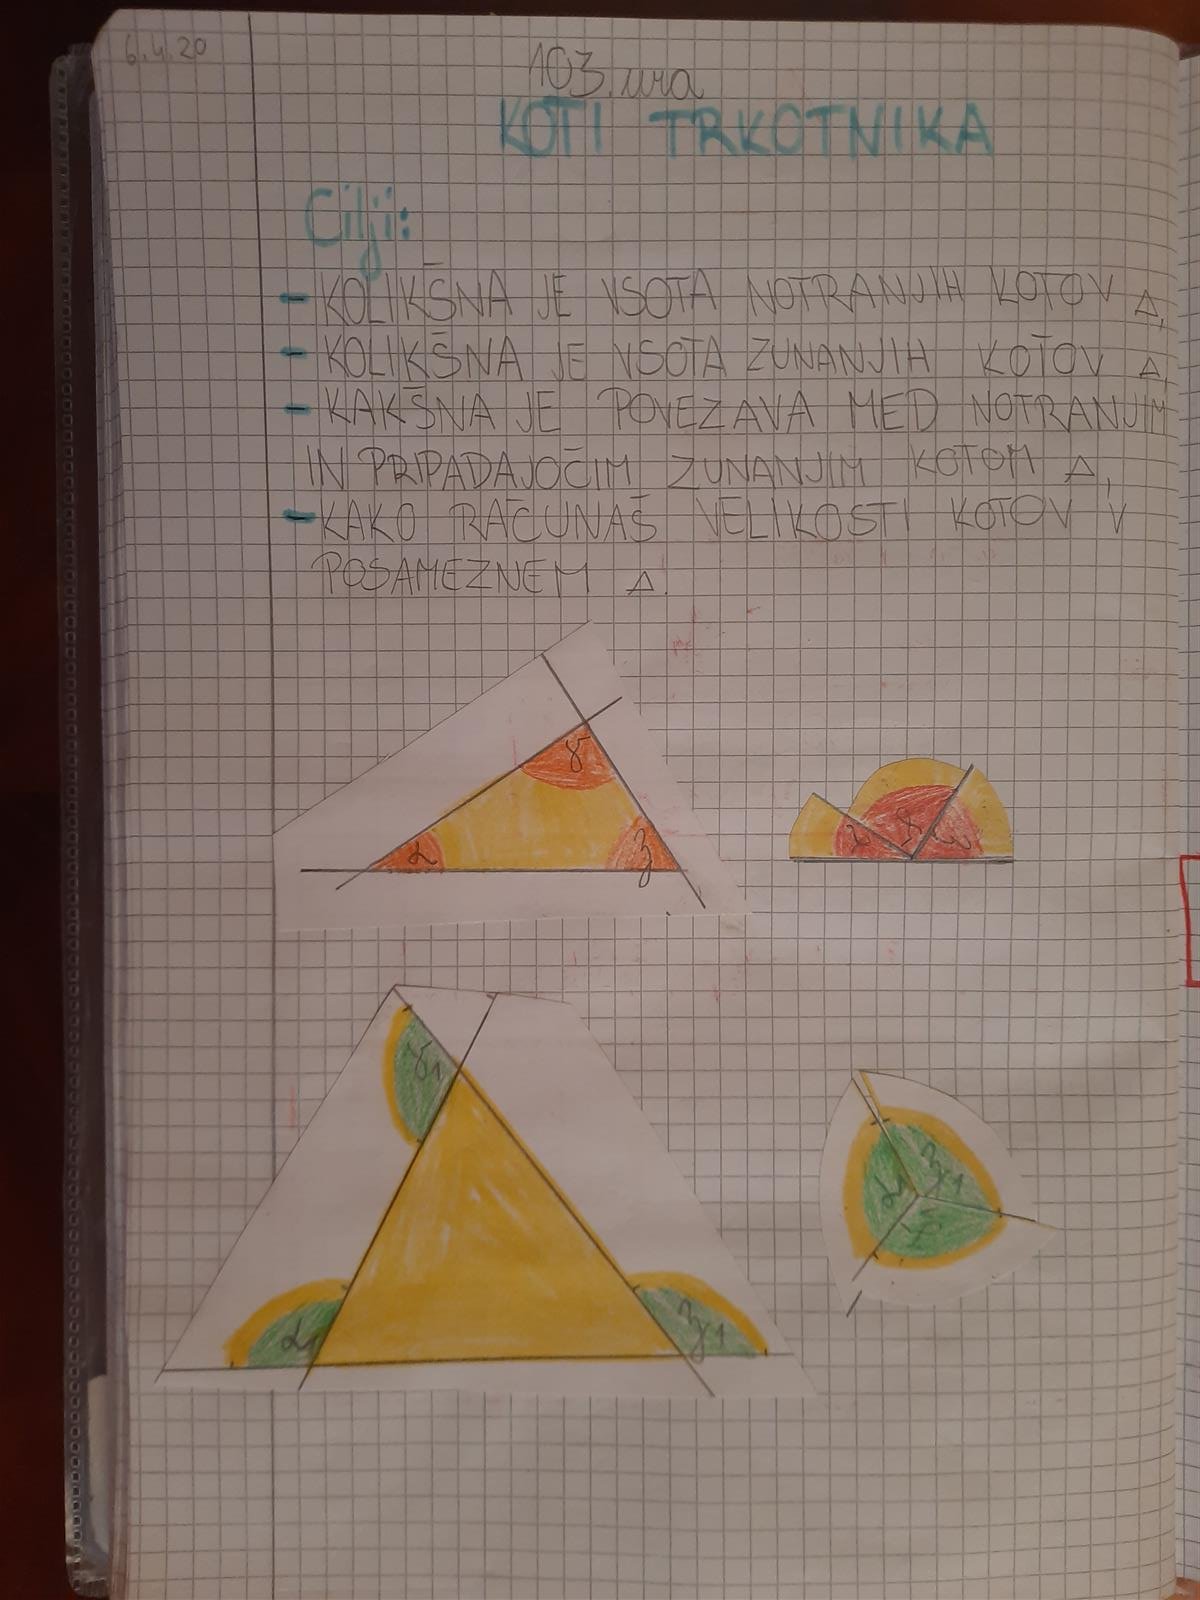 6.4.20
103. ura
KOTI TRKOTNIKA
Cilji:
- KOLIKŠNA JE VSOTA NOTRANJIH KOTOV △,
- KOLIKŠNA JE VSOTA ZUNANJIH KOTOV △,
- KAKŠNA JE POVEZAVA MED NOTRANJIM
IN PRIPADAJOČIM ZUNANJIM KOTOM △,
- KAKO RAČUNAŠ VELIKOSTI KOTOV V
POSAMEZNEM △.
γ
α β
α γ β
γ1
α1 β1
α1 β1
γ1